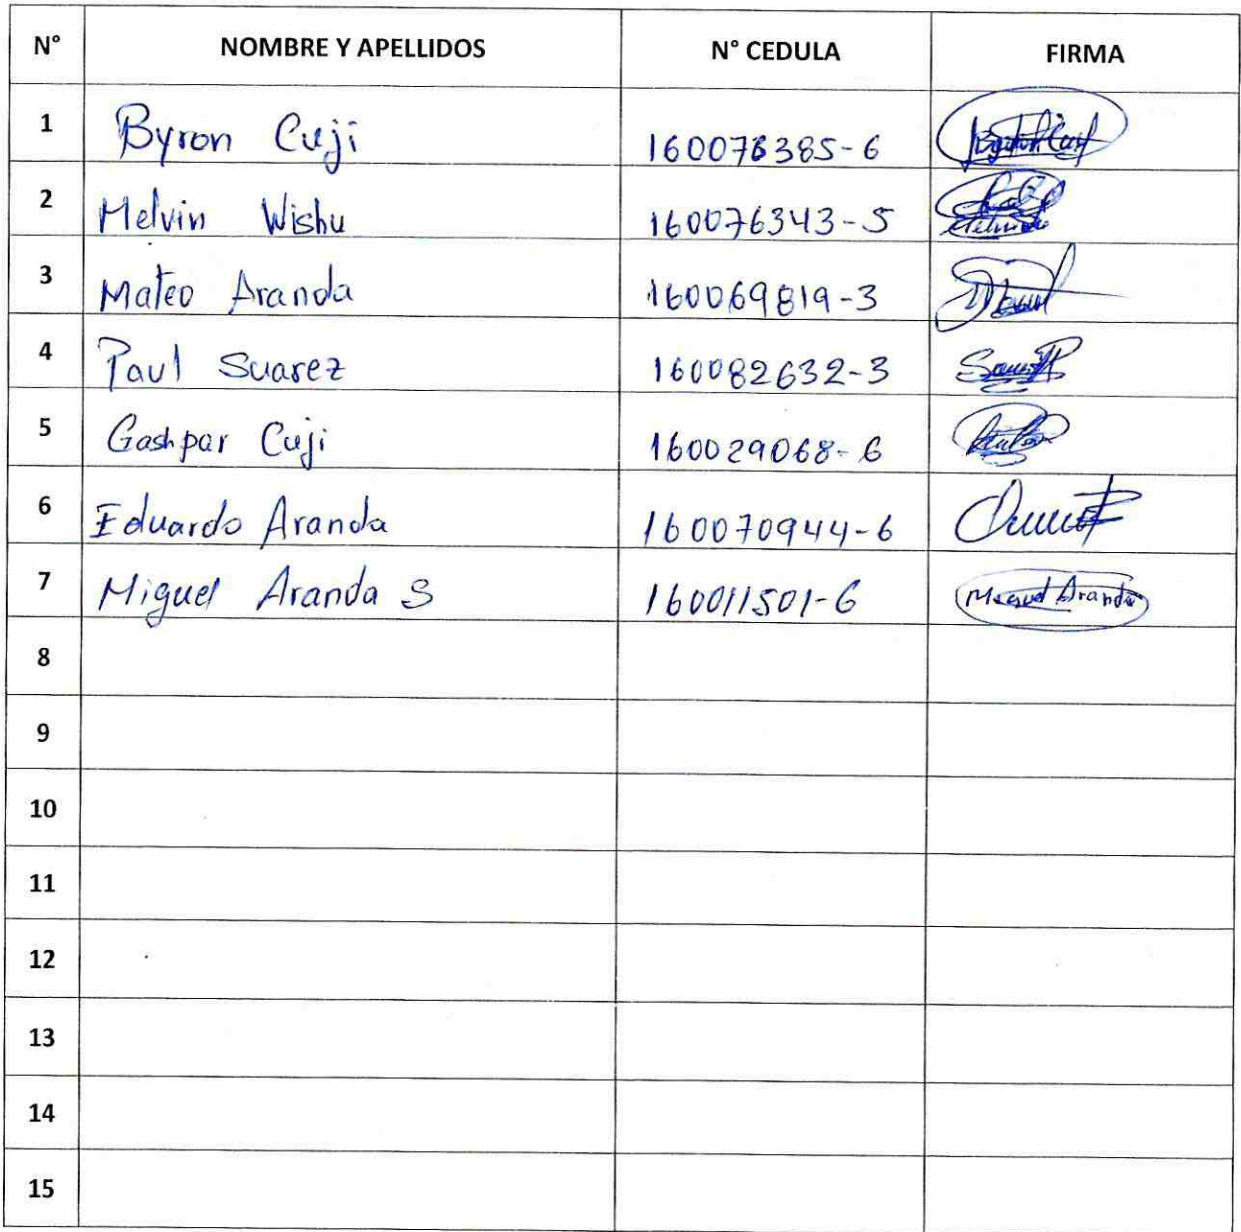 N° NOMBRE Y APELLIDOS N° CEDULA FIRMA
1 Byron Cuji 160076385-6
2 Melvin Wishu 160076343-5
3 Mateo Aranda 160069819-3
4 Paul Suarez 160082632-3
5 Gashpar Cuji 160029068-6
6 Eduardo Aranda 160070944-6
7 Miguel Aranda S 160011501-6 Miguel Aranda
8
9
10
11
12
13
14
15